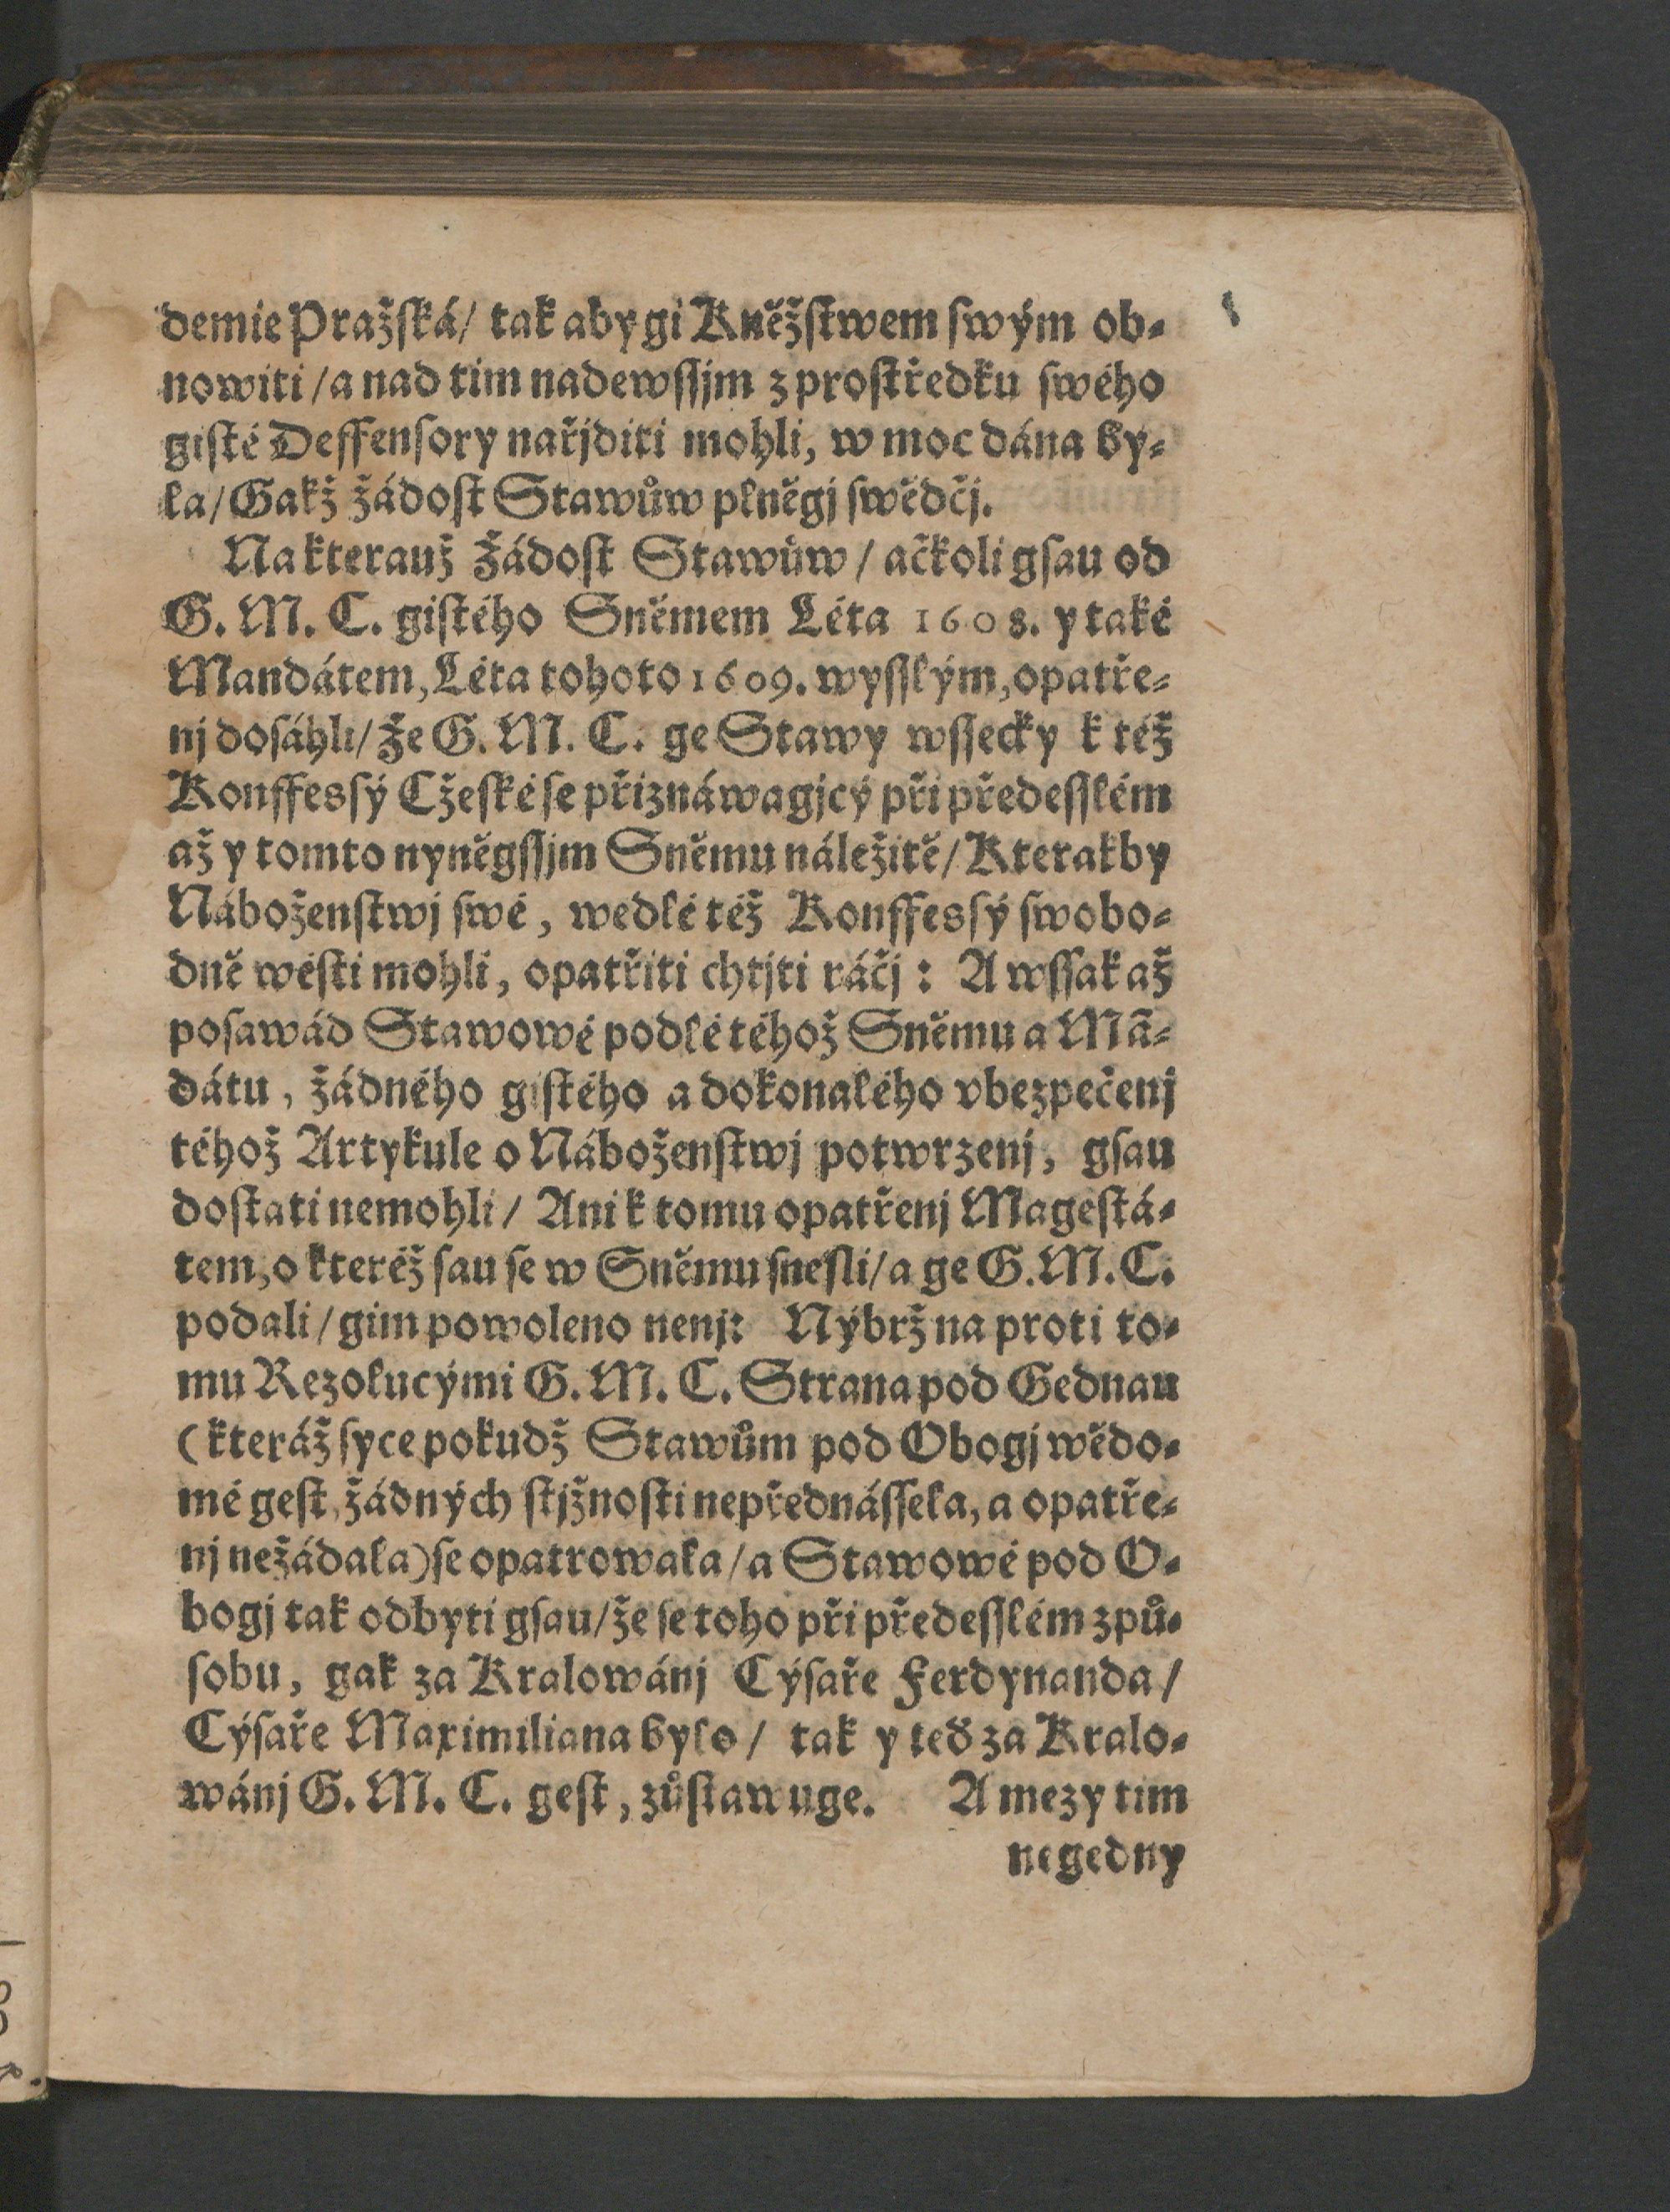 demie Pražſká/ tak aby gi Kněžſtwem ſwým ob⸗
nowiti / a nad tim nadewſſjm z proſtředku ſwého
giſté Deffenſory nařjditi mohli, w moc dána by⸗
la/ Gakž žádoſt Stawůw plněgj ſwědčj.
Na kterauž žádoſt Stawůw / ačkoli gſau od
G. M. C. giſtého Sněmem Léta 1608. y také
Mandátem, Léta tohoto 1609. wyſſlým, opatře⸗
nj doſáhli/ že G. M. C. ge Stawy wſſecky k též
Konffesſý Cžeſké ſe přiznáwagjcý při předeſſlém
až y tomto nyněgſſjm Sněmu náležitě/ Kterakby
Náboženſtwj ſwé, wedlé též Konffesſý ſwobo⸗
dně wéſti mohli, opatřiti chtjti ráčj: A wſſak až
poſawád Stawowé podlé téhož Sněmu a Mã⸗
dátu, žádného giſtého a dokonalého vbezpečenj
téhož Artykule o Náboženſtwj potwrzenj, gſau
doſtati nemohli / Ani k tomu opatřenj Mageſtá⸗
tem, o kteréž ſau ſe w Sněmu ſneſli/ a ge G. M. C.
podali / gim powoleno nenj: Nýbrž na proti to⸗
mu Rezolucými G. M. C. Strana pod Gednau
(kteráž ſyce pokudž Stawům pod Obogj wědo⸗
mé geſt, žádných ſtjžnoſti nepřednáſſela, a opatře⸗
nj nežádala) ſe opatrowala / a Stawowé pod O⸗
bogj tak odbyti gſau/ že ſe toho při předeſſlém způ⸗
ſobu, gak za Kralowánj Cýſaře Ferdynanda /
Cýſaře Maximiliana bylo / tak y teď za Kralo⸗
wánj G. M. C. geſt, zůſtawuge. A mezy tim
negedny